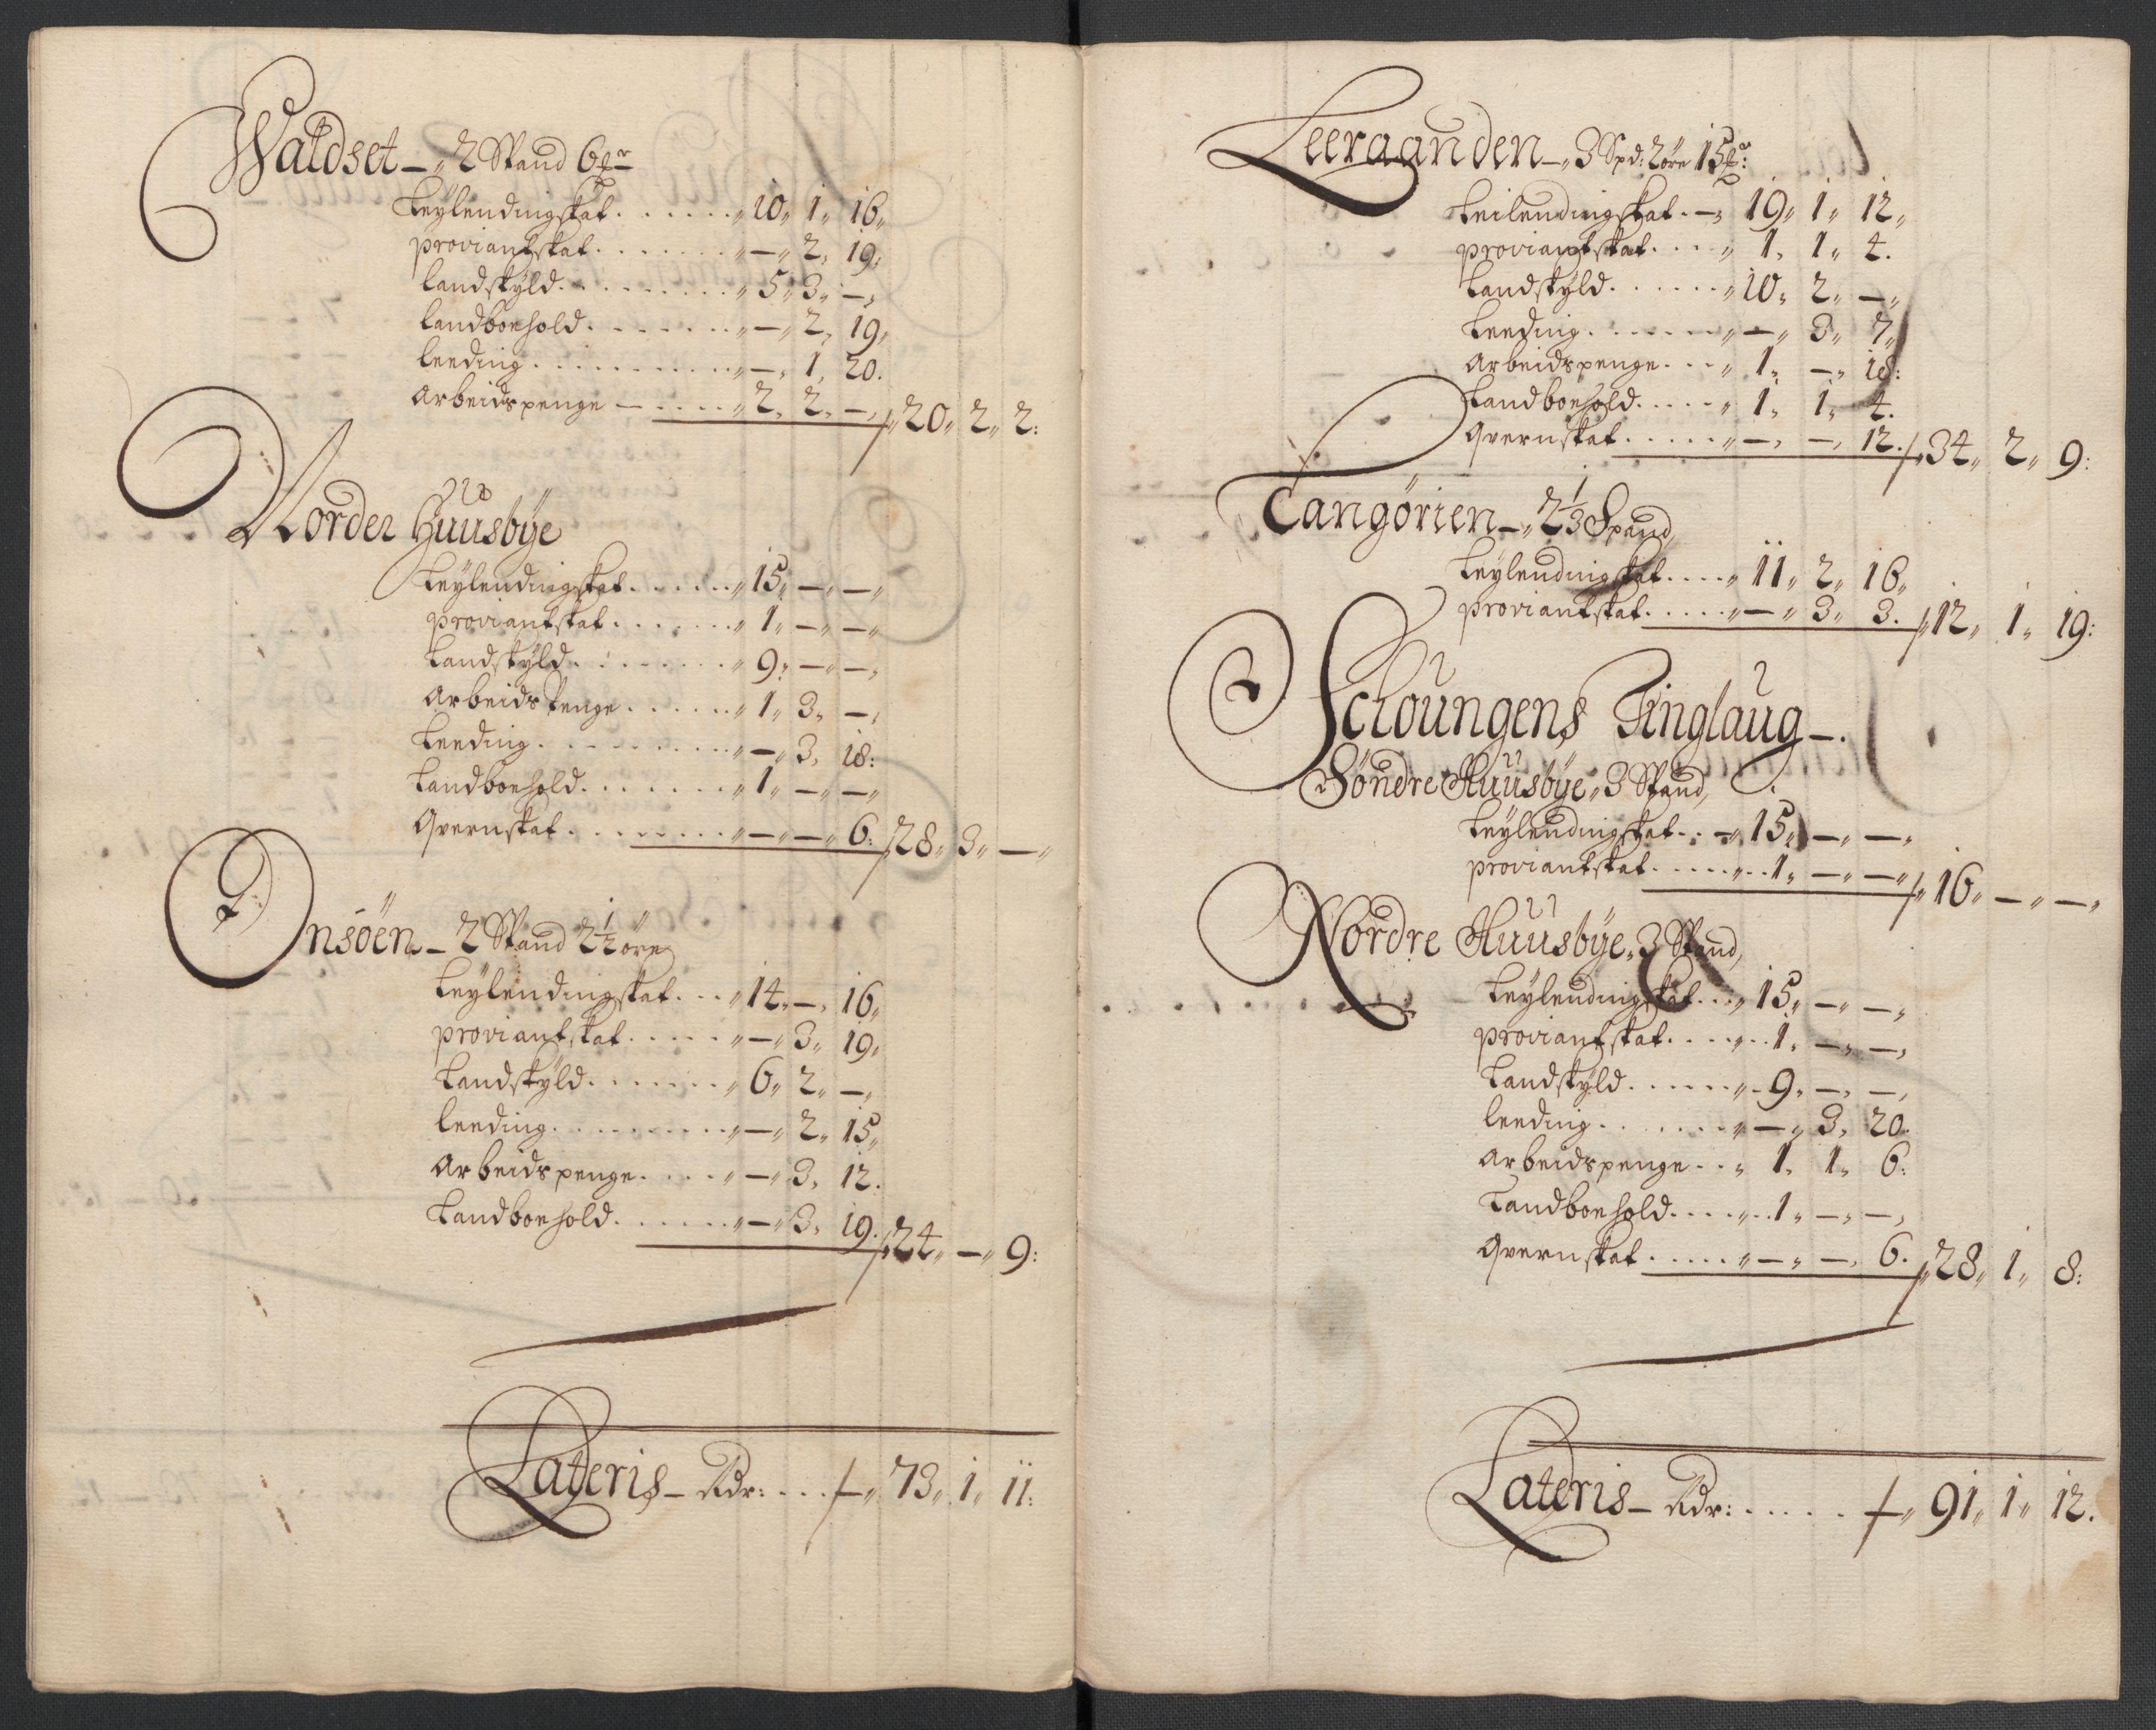 Waldset – 2 Spand 6 pr
Leylendingskat . . . . . . „ 10„ 1„ 16„
proviantskat . . . . . . . „ – „ 2„ 19„
landskyld . . . . . . . . . „ 5„ 3„ – „
landboehold . . . . . . . „ – „ 2„ 19„
leeding . . . . . . . . . . „ – „ 1„ 20.
Arbeidspenge – . . . . . „ 2„ 2„ – „ / „ 20„ 2„ 2:
Norder Huusbÿe
Leylendingskat . . . . . . „ 15„ – „ – „
proviantskat . . . . . . . „ 1„ – „ – „
Landskyld . . . . . . . . „ 9„ – „ – „
Arbeidspenge . . . . . . „ 1„ 3„ – „
Leeding . . . . . . . . . „ – „ 3„ 18:
Landboehold . . . . . . . „ 1„ – „ – „
Qvernskat . . . . . . . . „ – „ – „ 6: / „ 28„ 3„ – „
Onsöen – 2 Spand 2½ öre
Leylendingskat . . . „ 14„ – „ 16„
proviantskat . . . . . „ – „ 3„ 19„
Landskyld . . . . . . . „ 6„ 2„ – „
leeding . . . . . . . . . „ – „ 2„ 15„
Arbeidspenge . . . . . „ – „ 3„ 12.
Landboehold . . . . . . „ – „ 3„ 19. / „ 24„ – „ 9:
Lateris – Rdr: . . . / „ 73„ 1„ 11:
Leeraanden – „ 3 Spd: 2 öre 15 pr:
Leilendingskat . – „ 19„ 1„ 12„
proviantskat . . . . „ 1„ 1„ 4.
Landskyld . . . . . . „ 10„ 2„ – „
Leeding . . . . . . . „ – „ 3„ 7„
Arbeidspenge . . . „ 1„ – „ 18:
Landboehold . . . . . „ 1„ 1„ 4.
Qvernskat . . . . . . „ – „ – „ 12. / „ 34„ 2„ 9:
Tangörien – „ 2⅓ Spand,
Leylendingskat . . . . „ 11„ 2„ 16„
proviantskat . . . . . „ – „ 3„ 3. / „ 12„ 1„ 19:
Schoungens Tinglaug – .
Söndre Huusbÿe „ 3 Spand,
Leylendingskat . . – „ 15„ – „ – „
proviantskat . . . . . „ 1„ – „ – „ / „ 16„ – „ – „
Nordre Huusbÿe „ 3 Spand,
Leylendingskat . . . „ 15„ – „ – „
proviantskat . . . . . „ 1„ – „ – „
Landskyld . . . . . . „ 9„ – „ – „
leeding . . . . . . . „ – „ 3„ 20.
Arbeidspenge . . . „ 1„ 1„ 6:
Landboehold . . . . „ 1„ – „ – „
Qvernskat . . . . . „ – „ – „ 6. / „ 28„ 1„ 8:
Lateris – Rdr: . . . . . / „ 91„ 1„ 12.